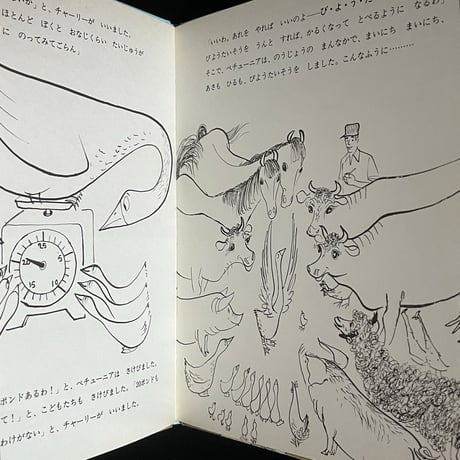 が」と、チャーリーが いいました。
ほとんど ぼくと おなじくらい たいじゅうが
に のってみてごらん」
25
20
5
15
10
ポンドあるわ！」と、ペチューニアは さけびました。
て！」と、こどもたちも さけびました。「20ポンドも
わけがない」と、チャーリーが いいました。
「いいわ。あれを やれば いいのよ――び・よ・う・た
びようたいそうを うんと すれば、かるくなって とべるように なるわ」
そこで、ペチューニアは、のうじょうの まんなかで、まいにち まいにち、
あさも ひるも、びようたいそうを しました。こんなふうに………